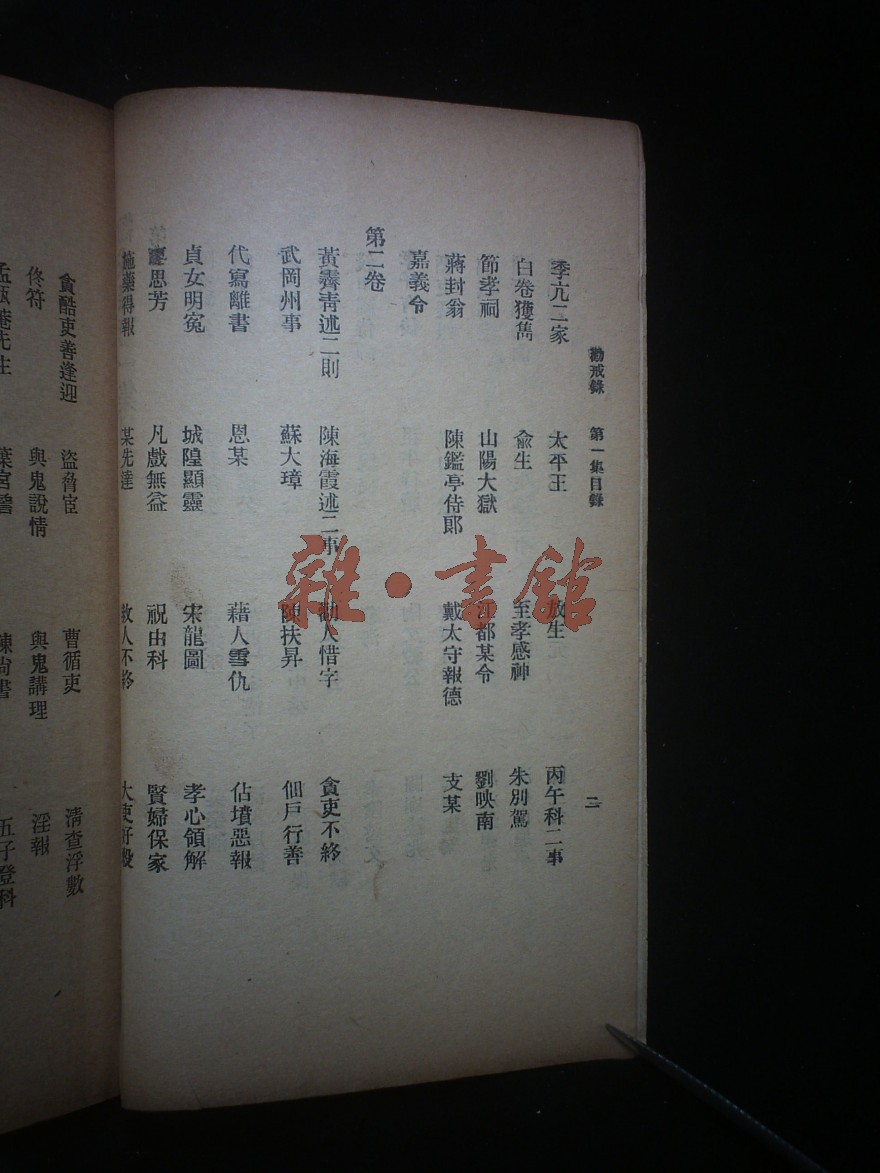 勸戒錄　第一集目錄　二
季亢二家　太平王　放生　丙午科二事
白卷獲雋　俞生　至孝感神　朱別駕
節孝祠　山陽大獄　江都某令　劉映南
蔣封翁　陳鑑亭侍郎　戴太守報德　支某
嘉義令
第二卷
黃霽青述二則　陳海霞述二事　勸人惜字　貪吏不終
武岡州事　蘇大璋　陳扶昇　佃戶行善
代寫離書　恩某　藉人雪仇　佔墳惡報
貞女明冤　城隍顯靈　宋龍圖　孝心領解
廖思芳　凡戲無益　祝由科　賢婦保家
施藥得報　某先達　救人不終　大吏好殺
貪酷吏善逢迎　盜脅宦　曹循吏　清查浮數
佟符　與鬼說情　與鬼講理　淫報
孟瓶菴先生　葉宮詹　陳尚書　五子登科
雜·書館